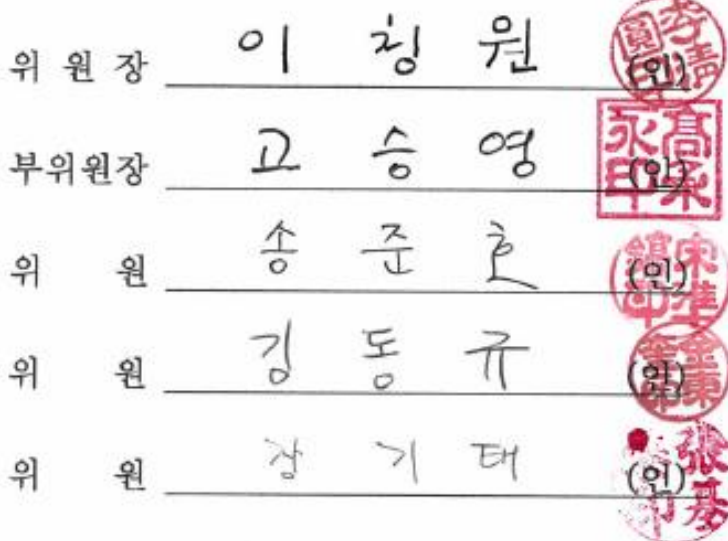 위 원 장 이 청 원 (인)
부위원장 고 승 영 (인)
위 원 송 준 호 (인)
위 원 김 동 규 (인)
위 원 장 기 태 (인)